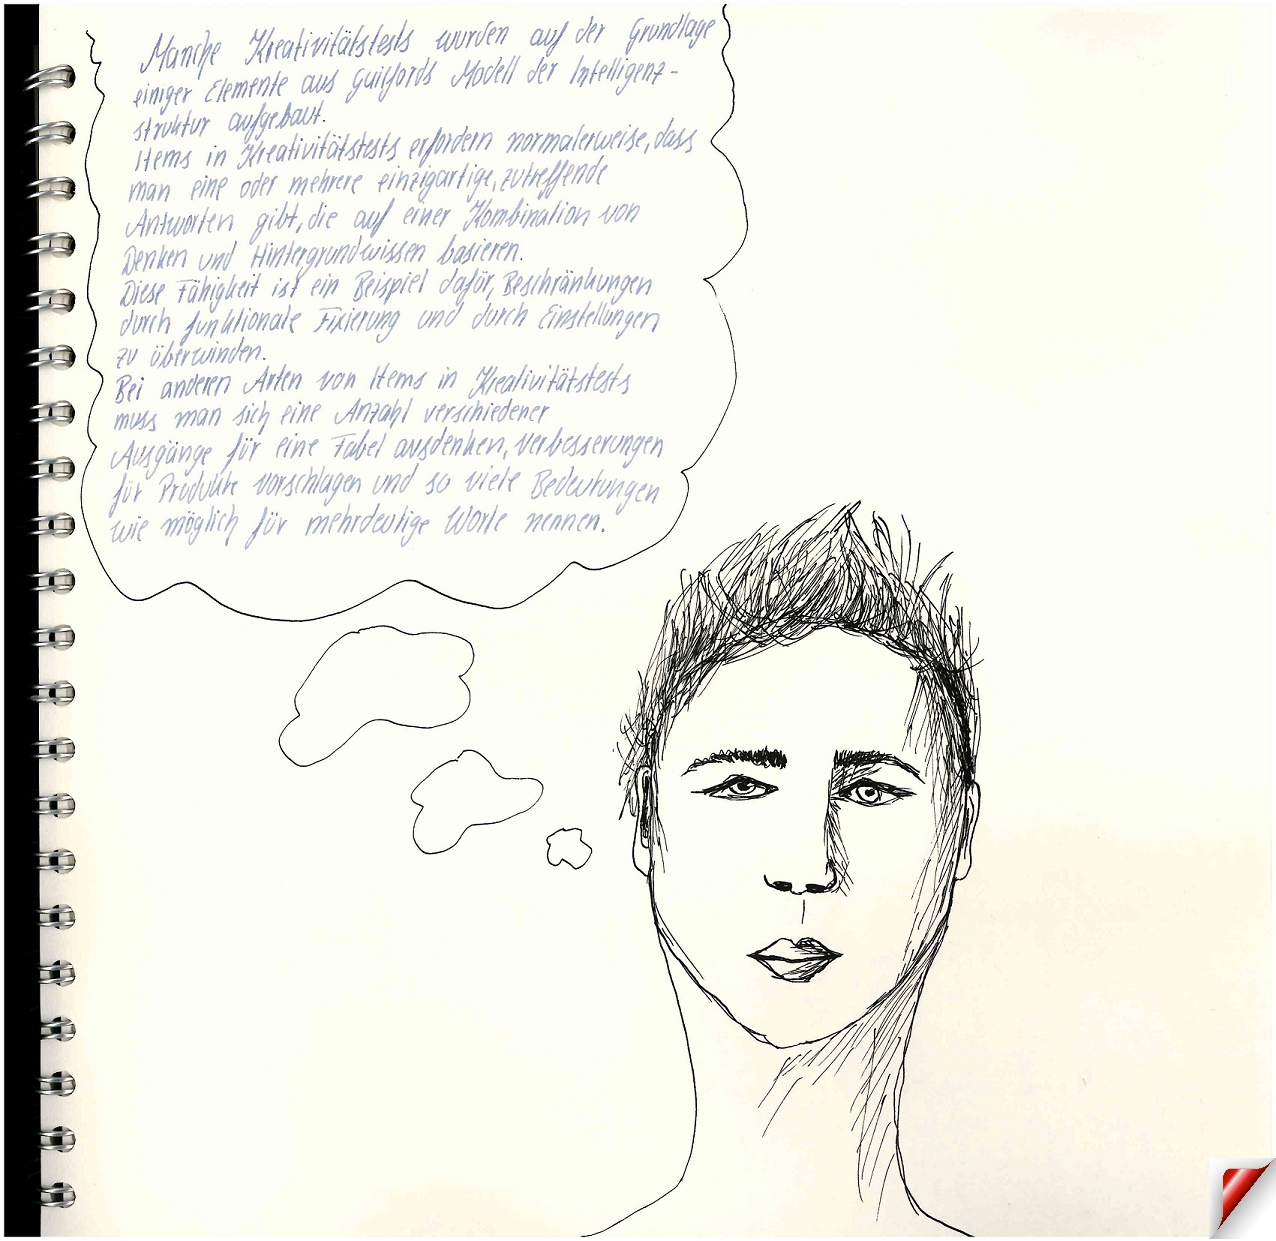 Manche Kreativitätstests wurden auf der Grundlage
einiger Elemente aus Guilfords Modell der Intelligenz-
struktur aufgebaut.
Items in Kreativitätstests erfordern normalerweise, dass
man eine oder mehrere einzigartige, zutreffende
Antworten gibt, die auf einer Kombination von
Denken und Hintergrundwissen basieren.
Diese Fähigkeit ist ein Beispiel dafür, Beschränkungen
durch funktionale Fixierung und durch Einstellungen
zu überwinden.
Bei anderen Arten von Items in Kreativitätstests
muss man sich eine Anzahl verschiedener
Ausgänge für eine Fabel ausdenken, Verbesserungen
für Produkte vorschlagen und so viele Bedeutungen
wie möglich für mehrdeutige Worte nennen.